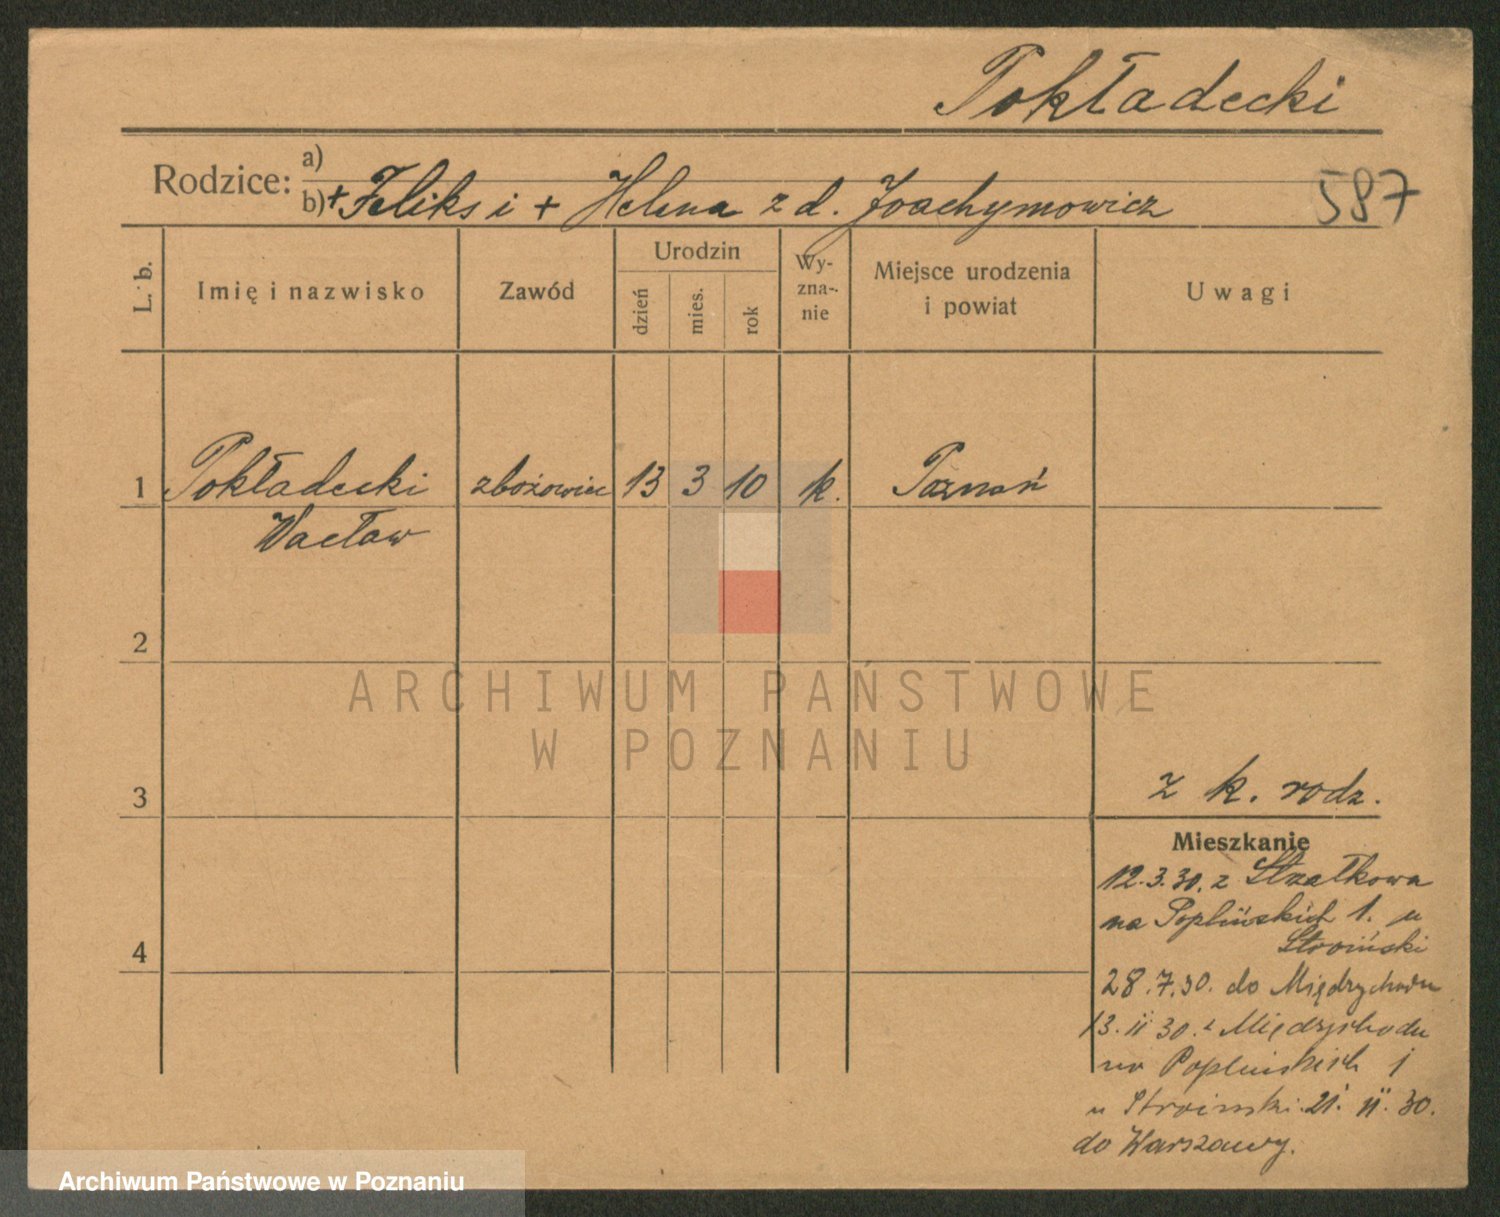 Pokładecki
Rodzice: a)
b) + Feliks i + Helena z d. Joachymowicz
587
L. b.
Imię i nazwisko
Zawód
Urodzin
dzień
mies.
rok
Wy-
zna-
nie
Miejsce urodzenia
i powiat
Uwagi
1 Pokładecki zbożowiec 13 3 10 k. Poznań
Wacław
2
ARCHIWUM PAŃSTWOWE
W POZNANIU
3
z k. rodz.
Mieszkanie
12.3.30. z Strzałkowa
na Poplińskich 1. u
Stroiński
4
28.7.30. do Międzychodu
13. 11 30. z Międzychodu
na Poplińskich 1
u Stroinski. 21. 11. 30.
do Warszawy.
Archiwum Państwowe w Poznaniu